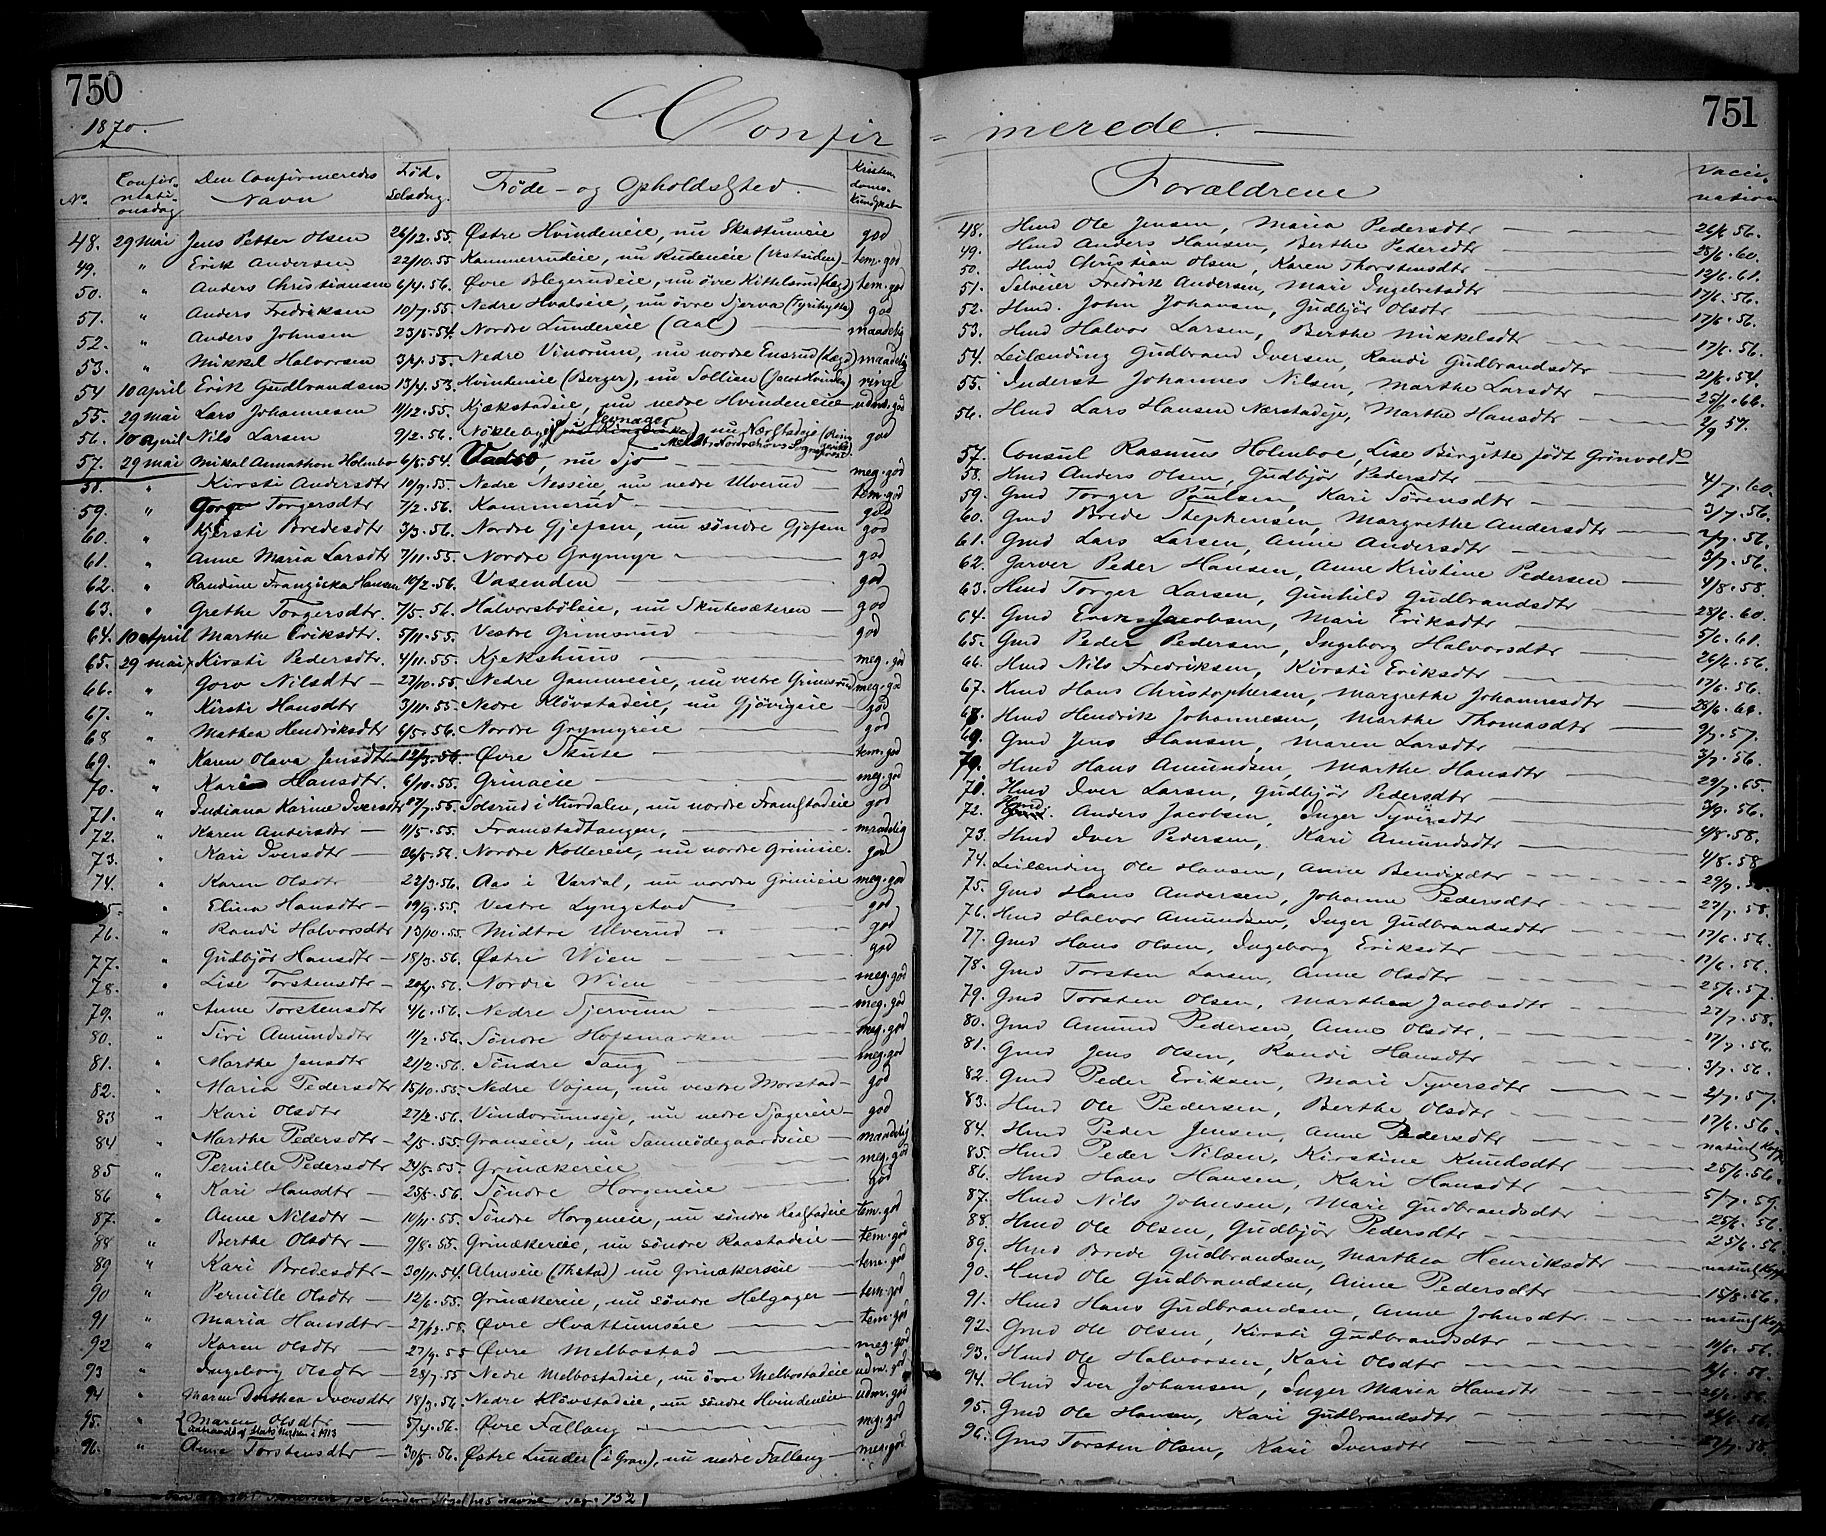 750
1870.
Confir
No. Confirmationsdag Den Confirmeredes Navn Fødselsdag. Føde- og Opholdssted. Kristendomskundskab
48. 29 Mai Jens Petter Olsen 26/12.55. Østre Hvindeneie, nu Skattumeie god
49. " Erik Andersen 22/10.55 Kammerrudeie, nu Rudeneie (Vestsiden) tem. god
50. " Anders Christiansen 6/4.56. Øvre Blegerudeie, nu øvre Kittelsrud (Lægd) tem. god
51. " Anders Fredriksen 10/7.55. Nedre Hvalseie, nu øvre Tjerva god
52. " Anders Johnsen 23/5.54. Nordre Lundereie (Aal) maadelig
53. " Mikkel Halvorsen 3/4.55. Nedre Vinorum, nu nordre Ensrud (Lægd) maadelig
54 10 April Erik Gudbrandsen 13/4.53. Hvindeneie (Berger), nu Sollien (Jacob Hvinden) ringe
55. 29 Mai Lars Johannesen 11/12.55. Kjækstadeie, nu nedre Hvindeneie udm. god
56. 10 April Nils Larsen 9/2.56. Nökleby i Jevnager, nu Nærstadeje god
57. 29 Mai Mikal Annathon Holmbo 6/5.54. Vadsö, nu Tjo meg. god
58. " Kirsti Andersdtr 10/9.55. Nedre Nesseie, nu nedre Ulverud tem. god
59. " Torgersdtr 7/2.56. Kammerud god
60. " Kjersti Bredesdtr 3/3.56. Nordre Gjefsen, nu söndre Gjefsen god
61. " Anne Maria Larsdtr 7/11.55. Nordre Grymyr god
62. " Randine Franziska Hansen 10/2.56. Vasenden god
63. " Grethe Torgersdtr. 7/5.56. Halvorsböleie, nu Skutesæteren god
64. 10 April Marthe Eriksdtr. 5/11.55. Vestre Grimsrud god
65. 29 Mai Kirsti Pedersdtr. 4/11.55. Kjekshuus meg. god
66. " Goro Nilsdtr 27/10.55. Nedre Gammeie, nu vestre Grimsrud meg. god
67. " Kirsti Hansdtr 3/11.55. Nedre Klövstadeie, nu Gjövigeie god
68 " Mathea Hendriksdtr 6/5.56. Nordre Grymyreie god
69. " Karen Olava Jensdtr 12/3.56 Øvre Skute tem. god
70. " Kari Hansdtr. 6/10.55. Grinaeie meg. god
71. " Indiana Karine Iversdtr 17/7.55. Idsrud i Hurdalen, nu nordre Framstadeie god
72. " Karen Andersdtr 11/5.55. Framstadtangen, maadelig
73. " Kari Iversdtr 26/5.56. Nordre Kollereie, nu nordre Grinieie. god
74. " Karen Olsdtr 22/3.56. Aas i Vardal, nu nordre Grinieie meg. god
" Elina Hansdtr 19/9.55. Vestre Lyngstad god
76. " Randi Halvorsdtr 13/10.55. Midtre Ulverud god
77. " Gudbjör Hansdtr 18/3.56. Østre Wien god
78. " Lise Torstensdtr 20/4.56. Nordre Wien meg. god
79. " Anne Torstensdtr 4/6.56. Nedre Tjervum meg. god
80. " Siri Amundsdtr 11/2.56. Söndre Hofsmarken meg. god
81. " Marthe Jensdtr 21/2.56. Söndre Tang meg. god
82. " Maria Pedersdtr 15/10.55. Nedre Vöjen, nu vestre Morstad god
83 " Kari Olsdtr 27/2.56. Vindorumseje, nu nedre Sjageneie god
84 " Marthe Pedersdtr 2/5.55. Granseie, nu Sanneödegaardseie maadelig
85 " Pernille Pedersdtr 24/5.55. Grinækereie meg. god
86 " Kari Hansdtr 25/5.56. Söndre Horgeneie god
87. " Anne Nilsdtr 10/11.55. Söndre Horgeneie, nu söndre Raastadeie tem. god
88 " Berthe Olsdtr 9/8.55. Grinækereie, nu söndre Raastadeie tem. god
89 " Kari Bredesdtr 30/11.54. Almseie (Thstad) nu Grinækerseie tem. god
90 " Pernille Olsdtr 12/6.55. Grinækereie, nu söndre Helgager tem. god
91 " Maria Hansdtr 27/12.55. Øvre Hvattumseie tem. god
92 " Karen Olsdtr 27/9.55 Øvre Melbostad meg. god
93 " Ingeborg Olsdtr 28/7.55 Nedre Melbostadeie, nu övre Melbostadeie udm. god
94 " Maren Dorthea Iversdtr 18/3.56. Nedre Klövstadeie, nu söndre Hvindeneie udm. god
95. " Maren Olsdtr 5/4.56. Øvre Fallang meg. god
udtraadt af Statskirken i 1913
96. " Anne Torstensdtr 30/5.56. Østre Lunder (i Gran), nu nedre Fallang meg. god
752
751
merede.
Forældrene Vaccination
48. Hmd Ole Jensen, Maria Pedersdtr 26/6 56.
49. Hmd Anders Hansen, Berthe Pedersdtr 25/6.60.
50. Hmd Christian Olsen, Karen Thorstensdtr 12/6.61.
51. Selveier Fredrik Andersen, Mari Ingebretsdtr 17/6.56.
52. Hmd. John Johansen, Gudbjör Olsdtr 17/6.56.
53. Hmd Halvor Larsen, Berthe Mikkelsdtr 17/6.56.
54. Leilænding Gudbrand Iversen, Randi Gudbrandsdtr 21/6.54.
55. Inderst Johannes Nilsen, Marthe Larsdtr 25/6.66.
56. Hmd Lars Hansen Nærstadeje, Marthe Hansdtr 2/9 57.
57. Consul Rasmus Holmboe, Lise Birgitte födt Grönvold
58. Hmd Anders Olsen, Gudbjör Pedersdtr 4/7.60.
59. Gmd Torger Poulsen, Kari Sörensdtr 3/7.56.
60. Gmd Brede Stephensen, Margrethe Andersdtr 2/7.56.
61. Gmd Lars Larsen, Anne Andersdtr 3/7.56.
62. Garver Peder Hansen, Anne Kristine Pedersen 4/8.58.
63. Hmd Torger Larsen, Gunhild Gudbrandsdtr 28/6.60.
64. Gmd Erik Jacobsen, Mari Eriksdtr 5/6.61.
65. Gmd Peder Pedersen, Ingeborg Halvorsdtr 26/6.56.
66. Hmd Nils Fredriksen, Kirsti Eriksdtr 17/6.56.
67. Hmd Hans Christophersen, Margrethe Johannesdtr 28/6.66.
68. Hmd Hendrik Johannesen, Marthe Thomasdtr 9/7.57.
69. Gmd Jens Hansen, Maren Larsdtr 3/7.56.
70. Hmd Hans Amundsen, Marthe Hansdtr 29/7.65.
71. Hmd Iver Larsen, Gudbjör Pedersdtr 3/9.56.
72. Hmd. Anders Jacobsen, Inger Syversdtr 4/8.58.
73. Hmd Iver Pedersen, Kari Amundsdtr 4/8.58
74. Leilænding Ole Hansen, Anne Bendixdtr
75. Gmd Hans Andersen, Johanne Pedersdtr 27/7.58.
76. Hmd Halvor Amundsen, Inger Gudbrandsdtr 17/6.56.
77. Gmd Hans Olsen, Ingeborg Eriksdtr 17/6.56.
78. Gmd Torsten Larsen, Anne Olsdtr 25/6.57.
79. Gmd Torsten Olsen, Marthea Jacobsdtr 27/7.58.
80. Gmd Amund Pedersen, Anne Olsdtr. 17/7.56.
81. Gmd Jens Olsen, Randi Hansdtr 3/7.56.
82. Gmd Peder Eriksen, Mari Syversdtr 2/7.57.
83. Hmd Ole Pedersen, Berthe Olsdtr 17/6.56.
84. Hmd Peder Jensen, Anne Pedersdtr naturl. Kopp
85. Hmd Peder Nilsen, Kirstine Knudsdtr 25/6.56.
86. Hmd Hans Hansen, Kari Hansdtr 5/7.59.
87. Hmd Nils Johnsen, Mari Gudbrandsdtr 25/6.56.
88. Hmd Ole Olsen, Gudbjör Pedersdtr 25/6.56.
89. Hmd Brede Gudbrandsen, Marthea Henriksdtr naturl. Kopp
90. Hmd Ole Gudbrandsen, Anne Pedersdtr 15/8.56.
91. Hmd Hans Gudbrandsen, Anne Johnsdtr. naturl. Kopp
92. Gmd Ole Olsen, Kirsti Gudbrandsdtr 11/6.56.
93. Hmd Ole Halvorsen, Kari Olsdtr
94. Hmd Iver Johansen, Inger Maria Hansdtr 26/6.56.
95. Gmd Ole Hansen, Kari Gudbrandsdtr 26/6.56.
96. Gmd Torsten Olsen, Kari Iversdtr 27/7.58.